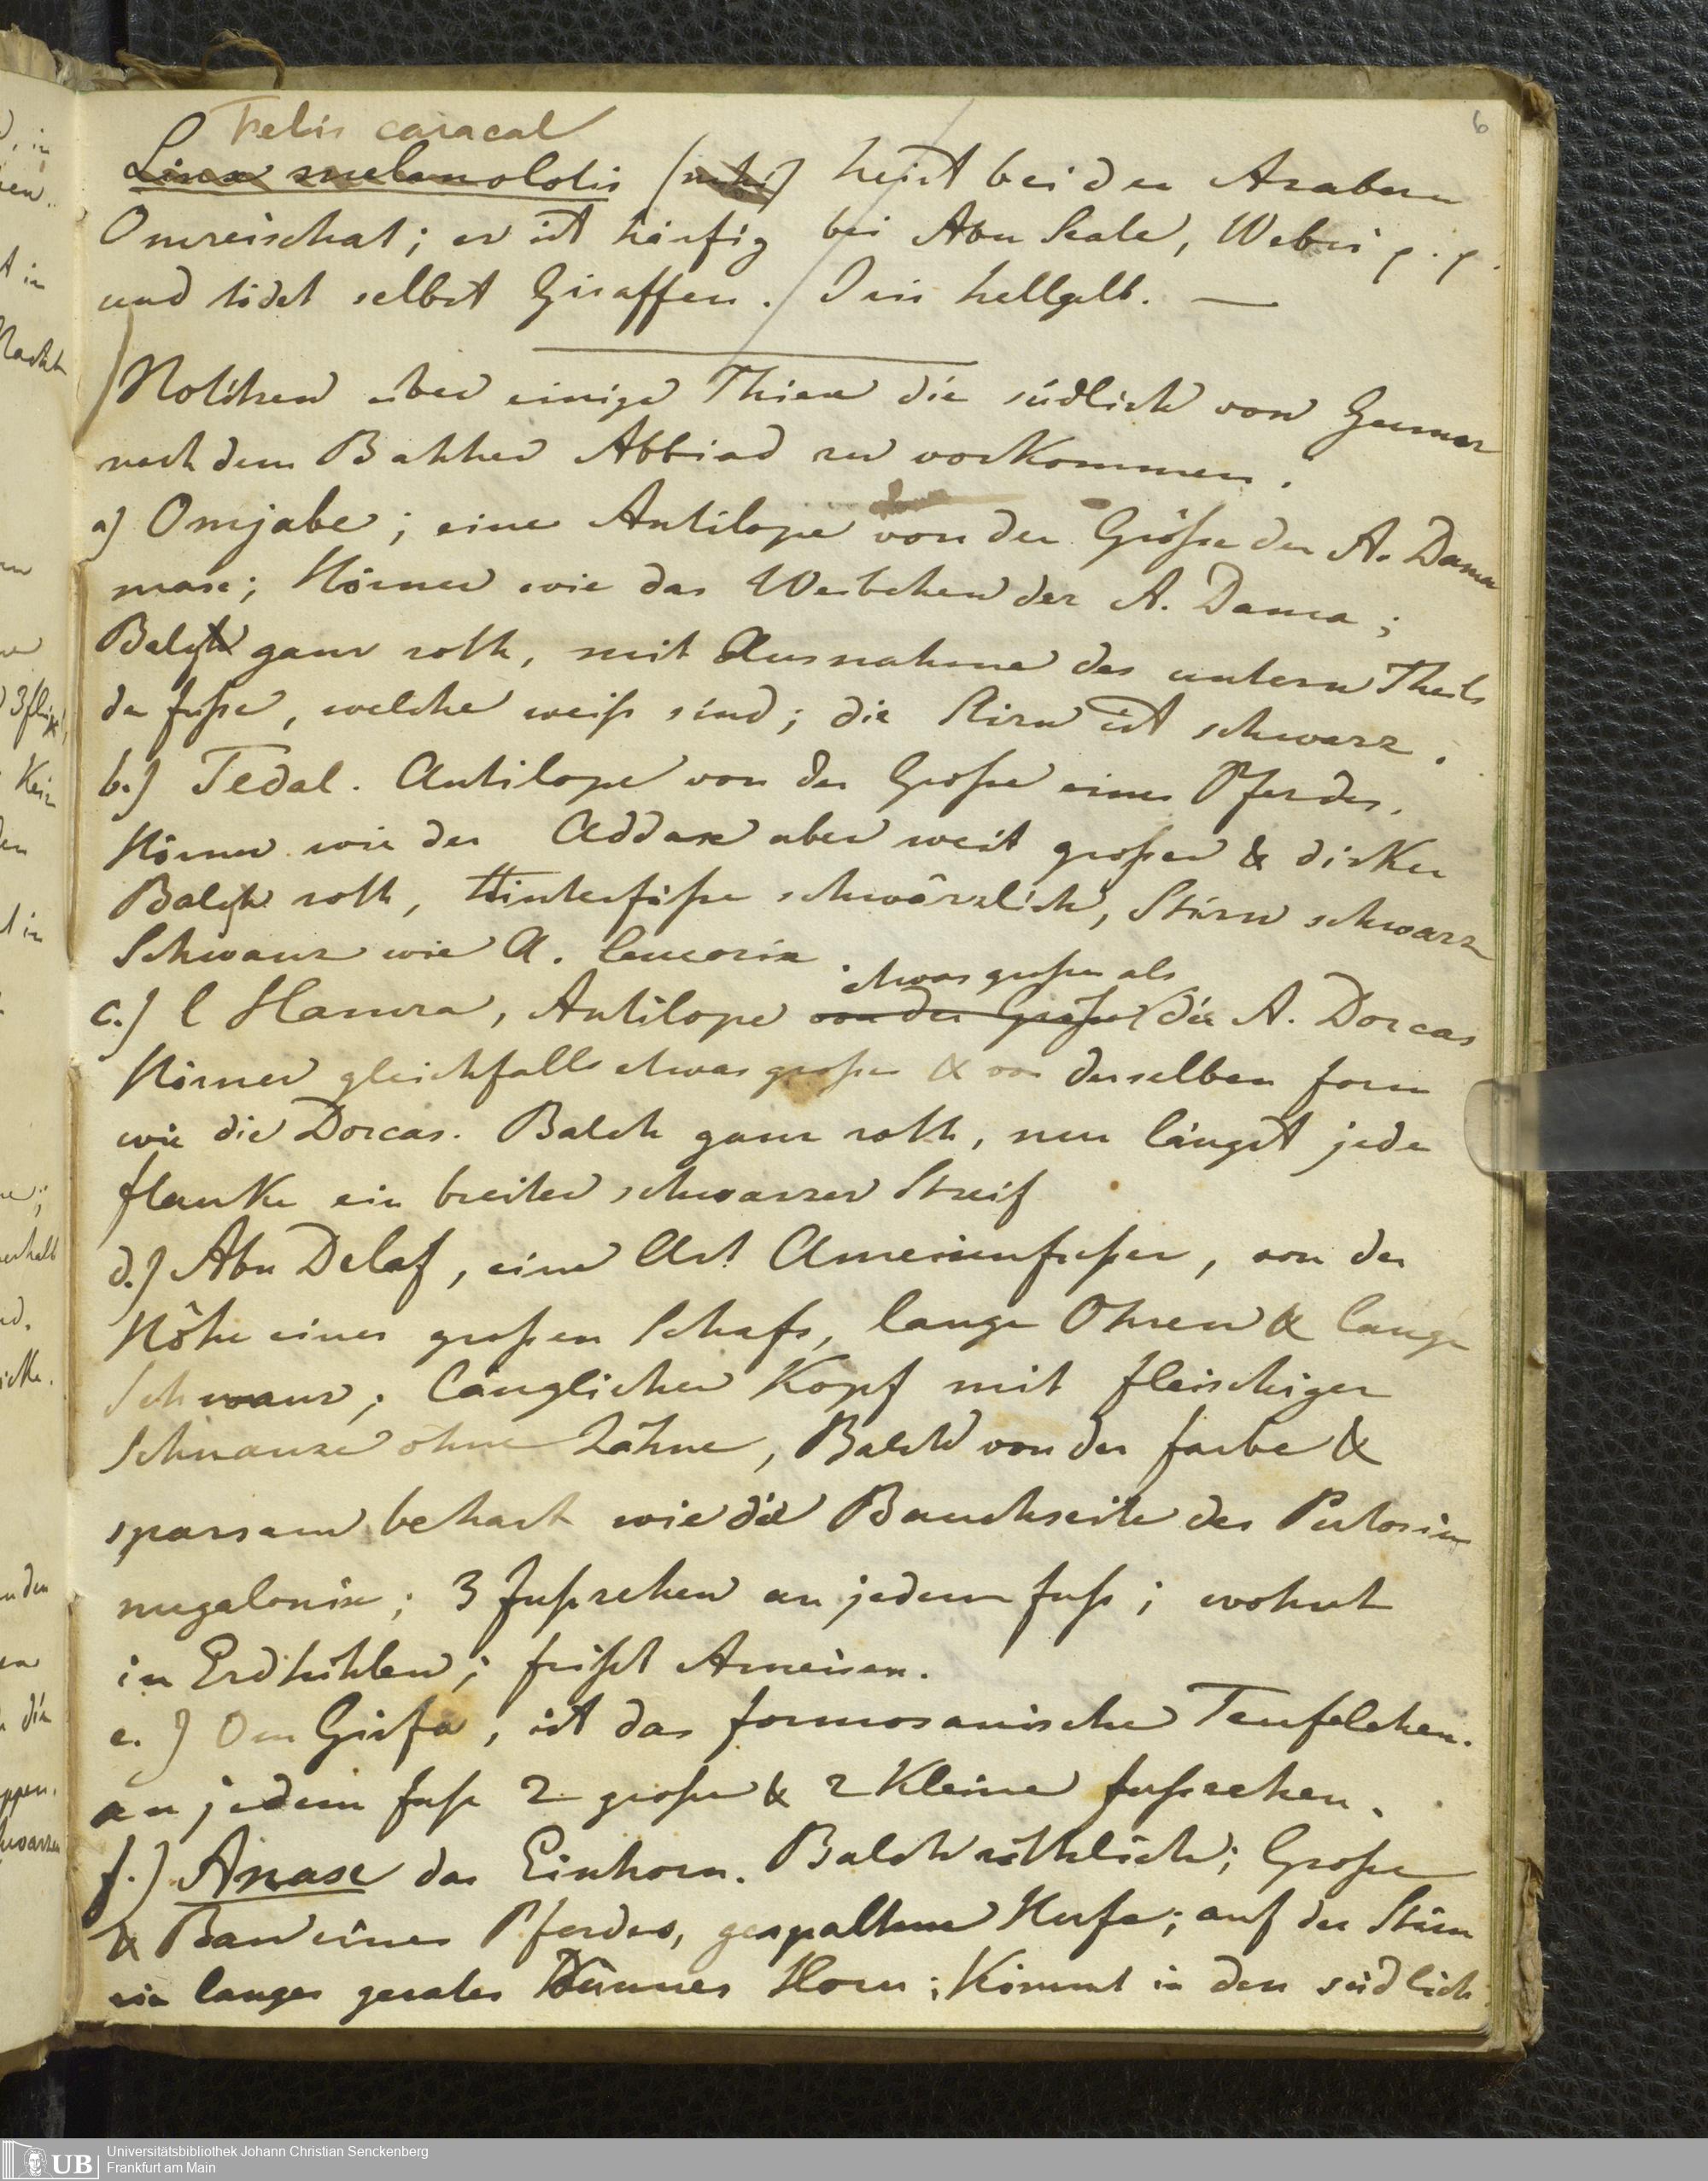 6
Felis caracal
Linx melanolotis heist bei den Arabern
Omreischat; er ist häufig bei Abu Seale, Webri p. p.
und tödet selbst Giraffen. Iris hellgelb. —
Notitzen über einige Thiere die südlich von
nach dem Bahher Abbiad zu vorkommen.
a) Omjabe; eine Antilope von der Größe der A. Dama
mase; Hörner wie das Weibchen der A. Dama;
Balgh ganz roth, mit Ausnahme des untern Theils
der fuße, welche weiß sind; die Stirn ist schwarz.
b.) Tedal. Antilope von der Große eines Pferdes.
Hörner wie der Addax aber weit großer & dicker
Balgh roth, Hinterfüße schwärzlich, Stirn schwarz
Schwanz wie A. leucorix
etwas großer als
c.) l Hamra, Antilope von der Größe die A. Dorcas
Hörner gleichfalls etwas großer & von derselben form
wie die Dorcas. Balch ganz roth, nur längst jeder
flanke ein breiter schwarzer Streif
d.) Abu Delaf, eine Art Ameisenfreßer, von der
Höhe eines großen Schafs, lange Ohren & lange
Schwanz; länglicher Kopf mit fleischiger
Schnauze ohne Zähne, Balch von der farbe &
sparsam behart wie die Bauchseite des
megalonix; 3 fußzehen an jedem fuß; wohnt
in Erdhöhlen; frißt Ameisen.
e.) Om Girfa, ist das formosanische Teufelchen.
an jedem fuße 2 große & 2 kleine fußzehen.
f.) Anase das Einhorn. Balch röthlich; Große
& Bau eines Pferdes, gespaltene Hufe; auf der Stirn
ein langes gerates Dünnes Horn; Kömmt in den südlich
UB
Universitätsbibliothek Johann Christian Senckenberg
Frankfurt am Main